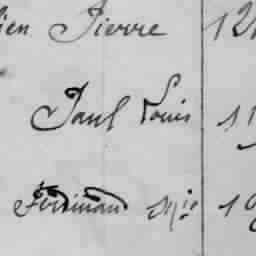 ien Pierre 12
Paul Louis 11
Ferdinand Mie 19